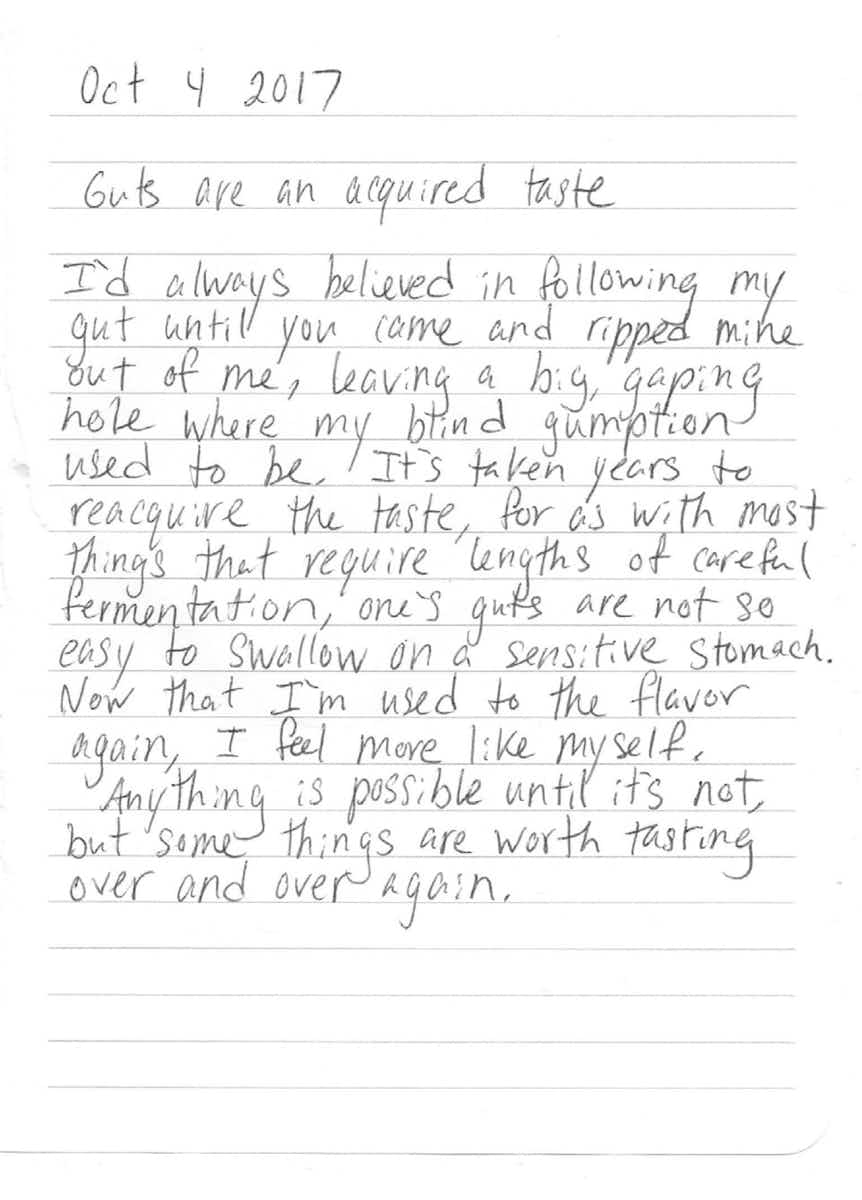 Oct 4 2017
Guts are an acquired taste
I'd always believed in following my
gut until you came and ripped mine
out of me, leaving a big, gaping
hole where my blind gumption
used to be. It's taken years to
reacquire the taste, for as with most
things that require lengths of careful
fermentation, one's guts are not so
easy to swallow on a sensitive stomach.
Now that I'm used to the flavor
again, I feel more like myself.
Anything is possible until it's not,
but some things are worth tasting
over and over again.